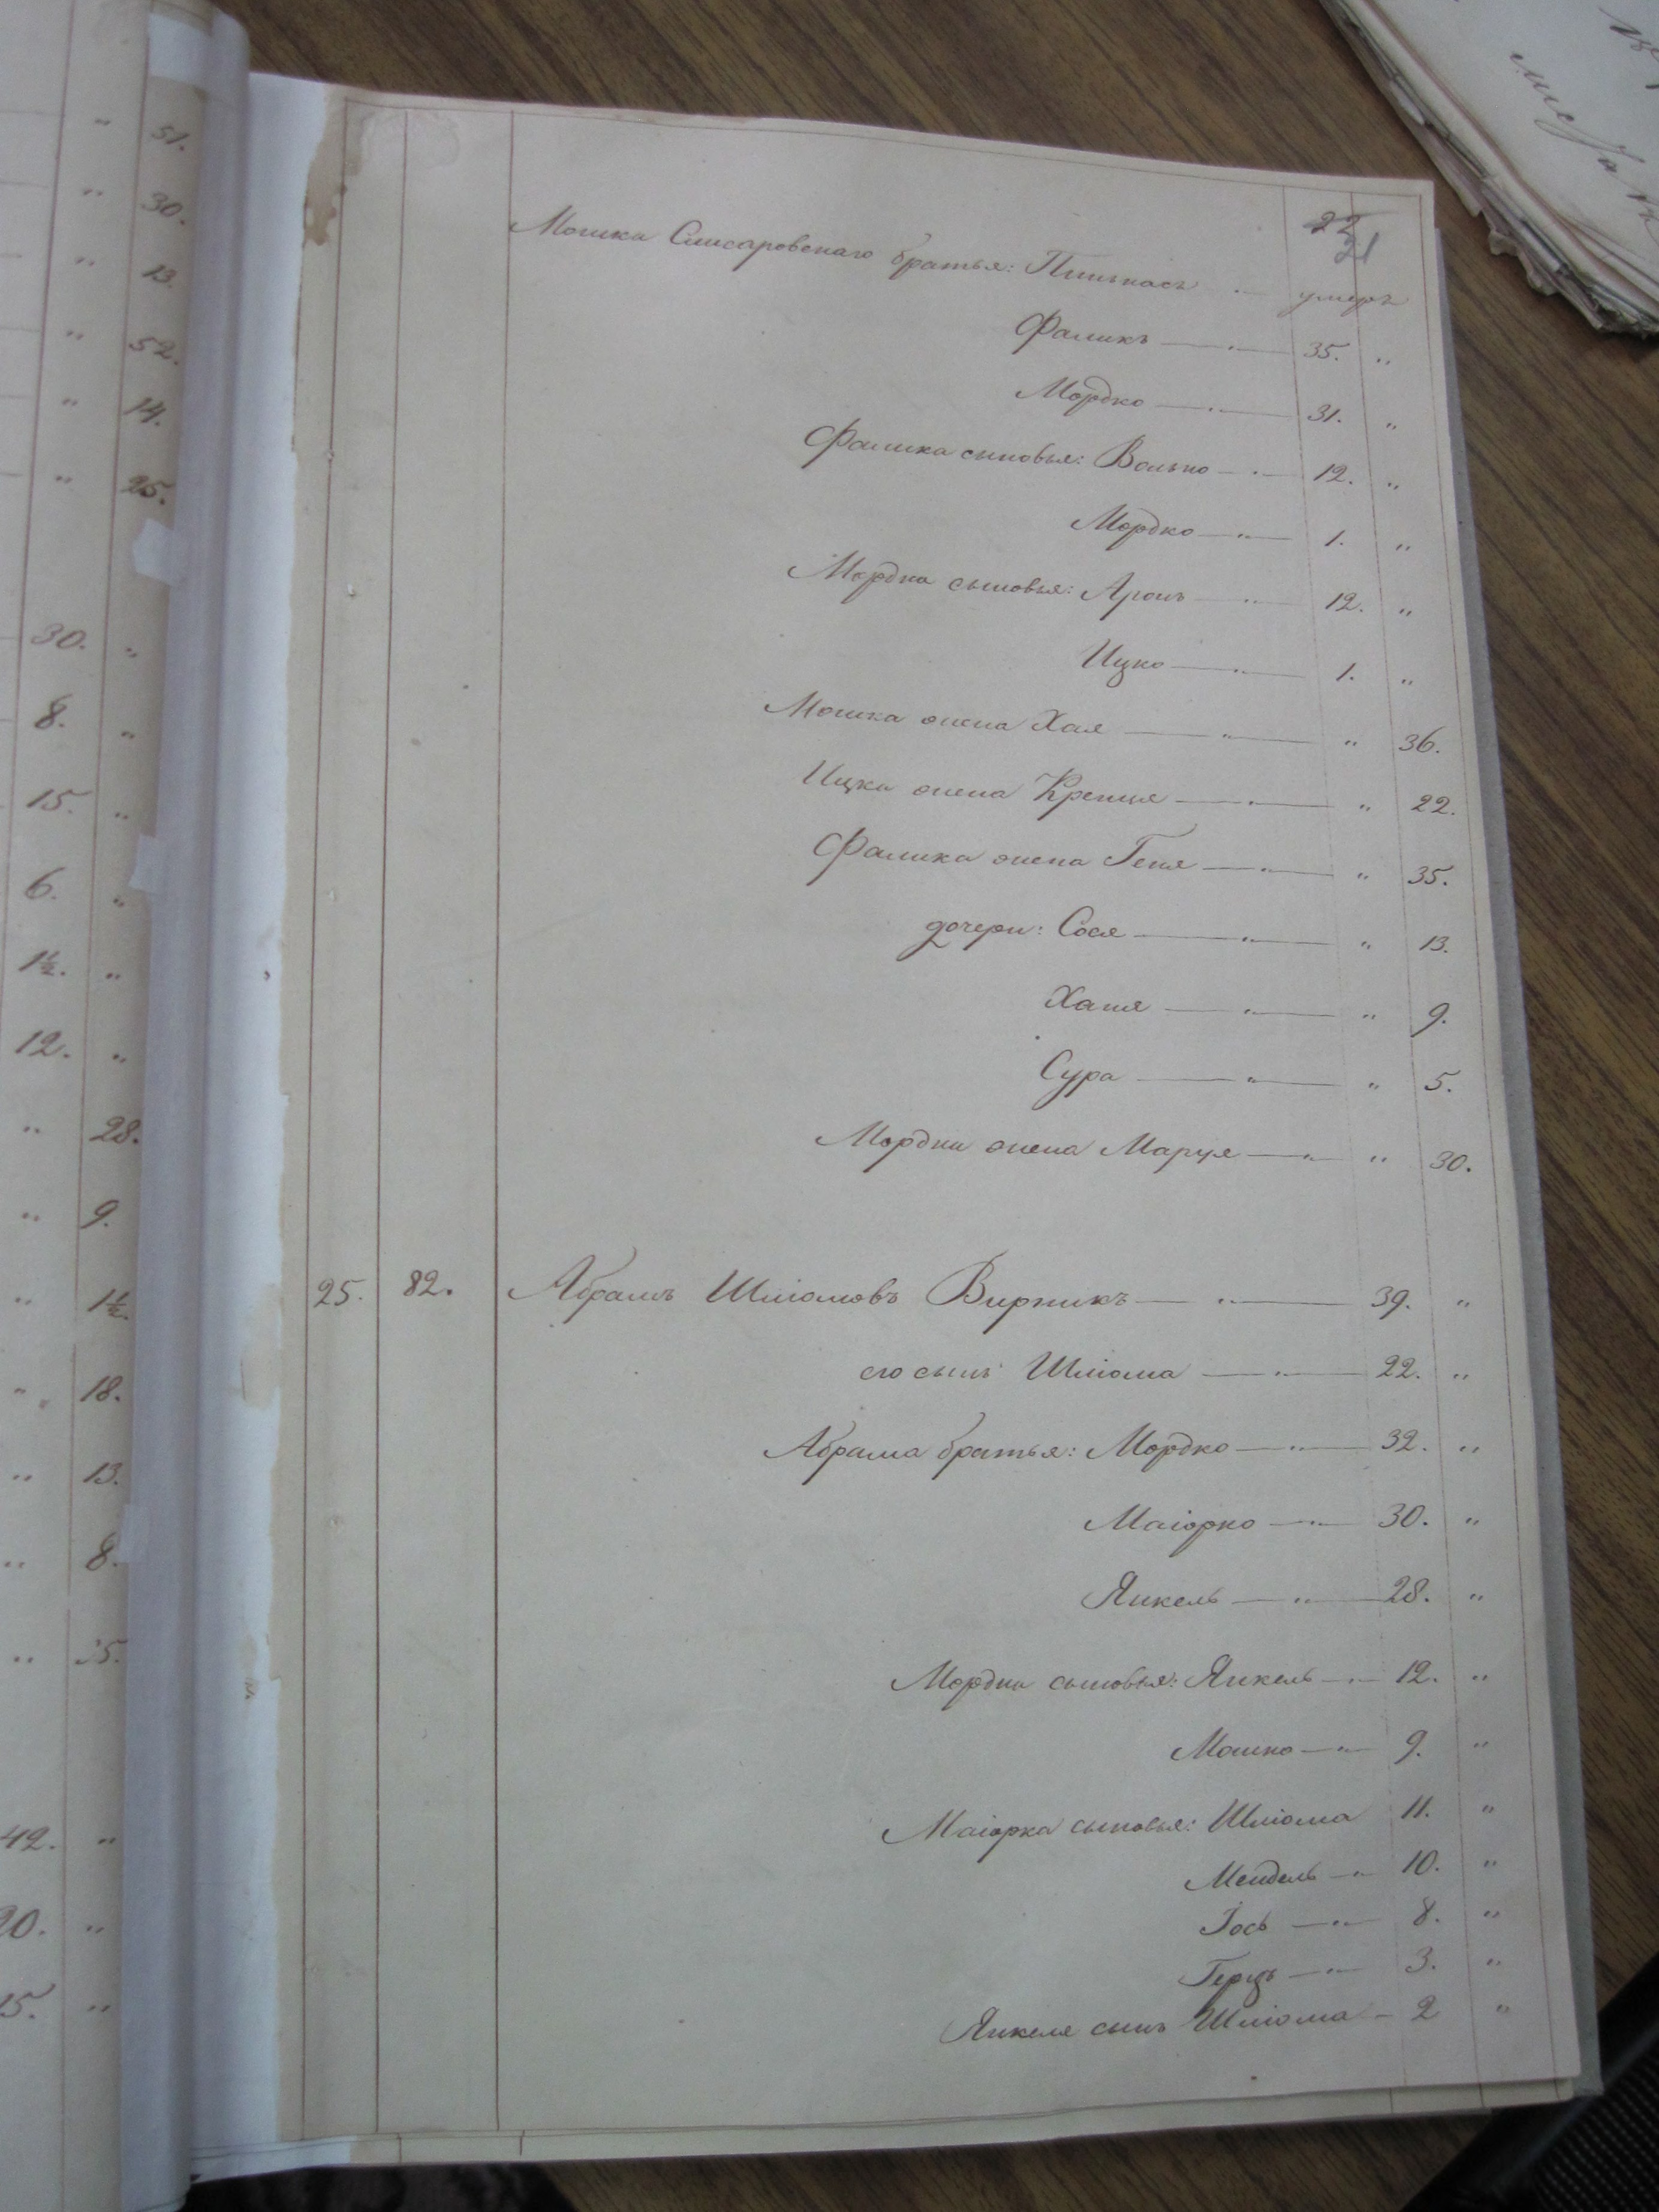 51.
30.
13.
52.
14.
25.
30.
8.
15.
6.
1½.
12.
28.
9.
1½.
18.
13.
8.
35.
42.
20.
15.
22
21
Мошка Слисаровскаго братья: Пинькасъ умеръ
Фаликъ 35. "
Мордко 31. "
Фалика сыновья: Волько 12. "
Мордко 1. "
Мордка сыновья: Аронъ 12. "
Ицко 1. "
Мошка жена Хая " 36.
Ицка жена Крепця " 22.
Фалика жена Геня " 35.
дочери: Сося " 13.
Хапя " 9.
Сура " 5.
Мордки жена Маруя " 30.
25. 82. Абрамъ Шліомовъ Вирникъ 39. "
его сынъ Шліома 22. "
Абрама братья: Мордко 32. "
Маіорко 30. "
Янкель 28. "
Мордки сыновья: Янкель 12. "
Мошко 9. "
Маіорка сыновья: Шліома 11. "
Мендель 10. "
Іось 8. "
Герцъ 3. "
Янкеля сынъ Шліома 2 "